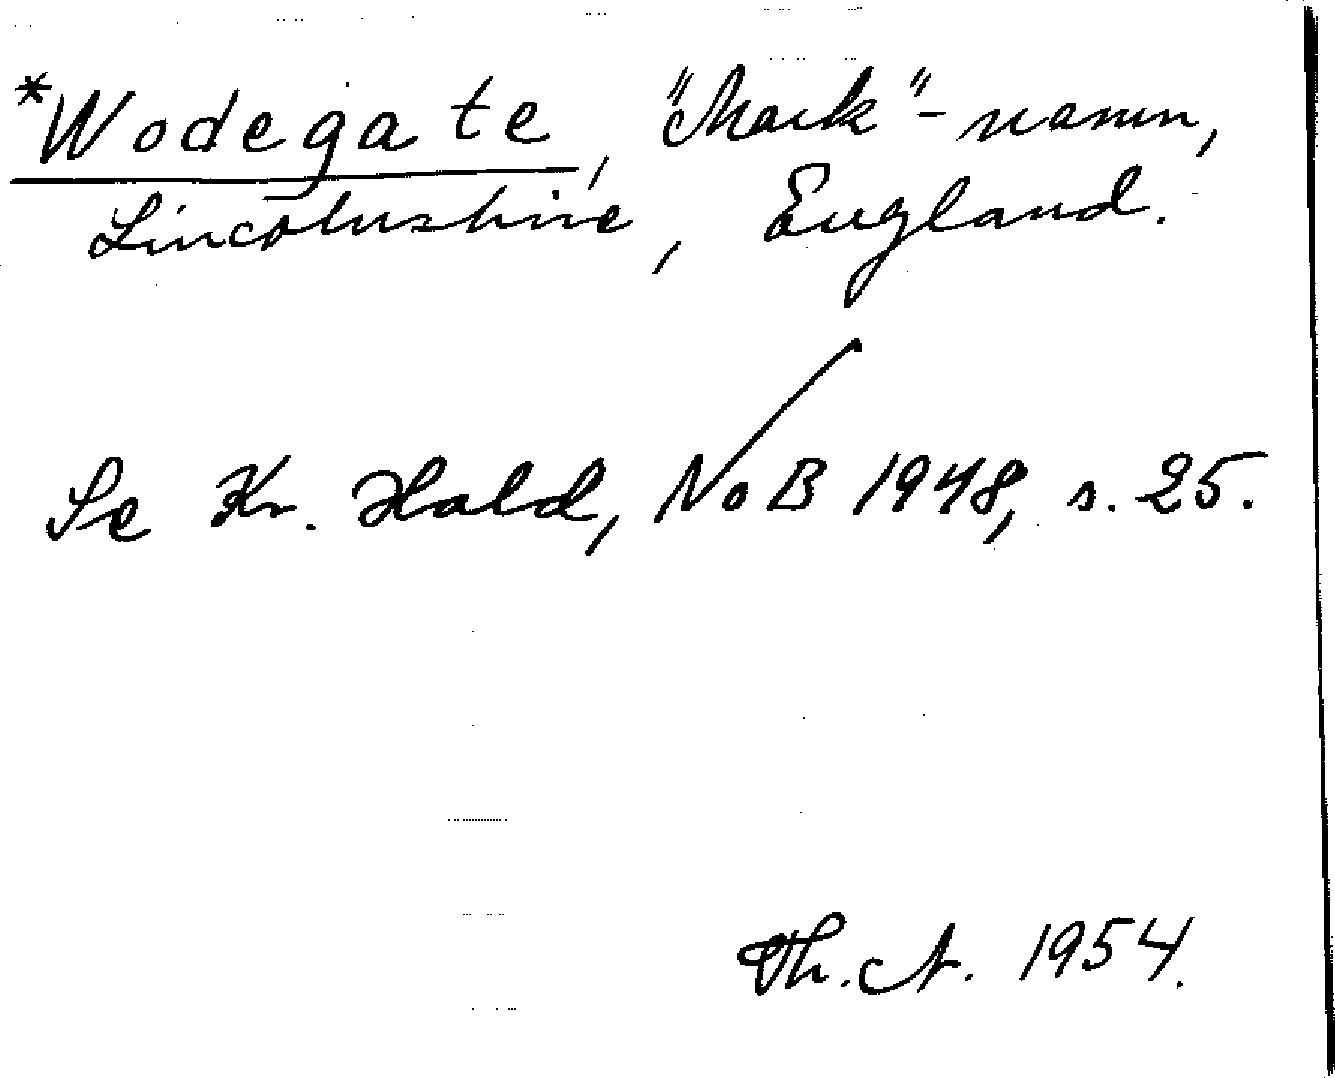 *Wodegate, "Mark"-namn,
Lincolnshire, England.
Se Kr. Hald, NoB 1948, s. 25.
Th. A. 1954.